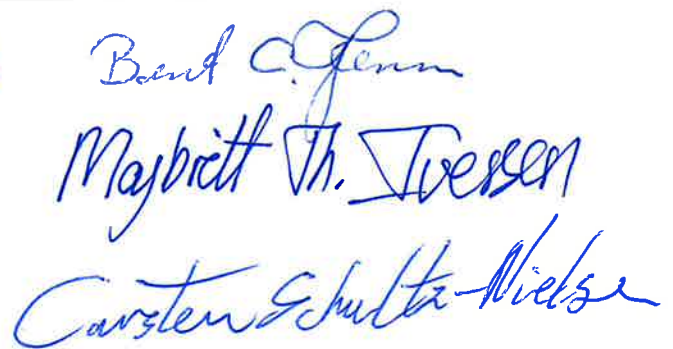 Bent C. Jensen
Majbritt Th. Iversen
Carsten Schultz-Nielsen